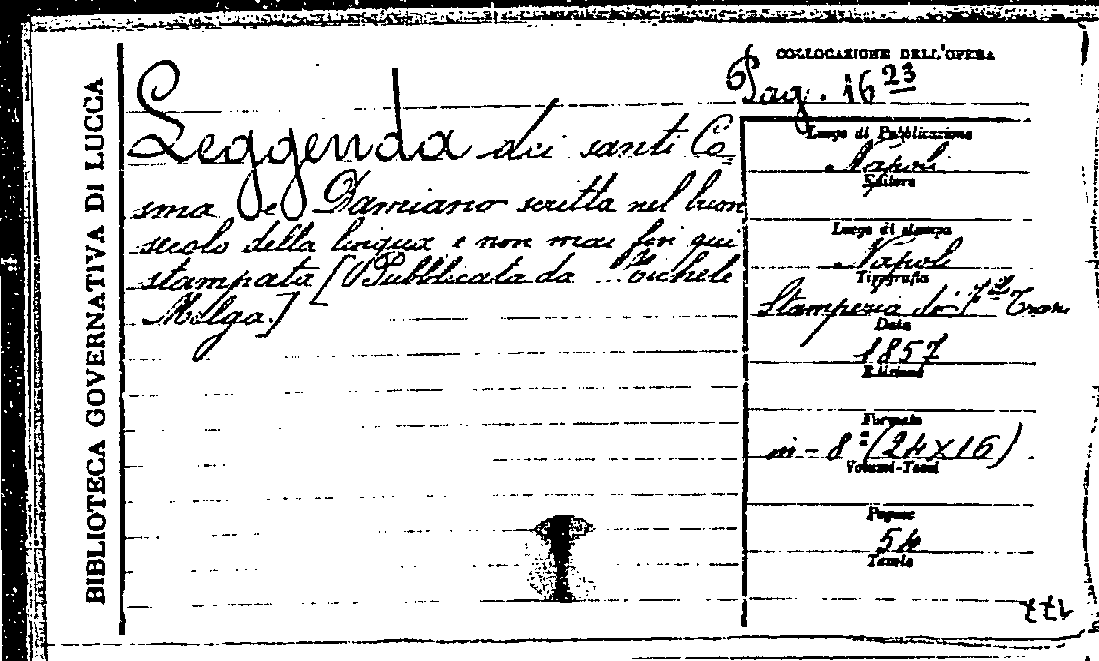 BIBLIOTECA GOVERNATIVA DI LUCCA
COLLOCAZIONE DELL'OPERA
Pag. 16 23
Leggenda dei santi Co=
sma e Damiano scritta nel buon
secolo della lingua e non mai fin qui
stampata [Pubblicata da Michele
Melga.]
Luogo di Pubblicazione
Napoli
Editore
Luogo di stampa
Napoli
Tipografia
Stamperia del
Data
1857
Edizione
Formato
in - 8º (24x16)
Volumi-Tomi
Pagine
54
Tavole